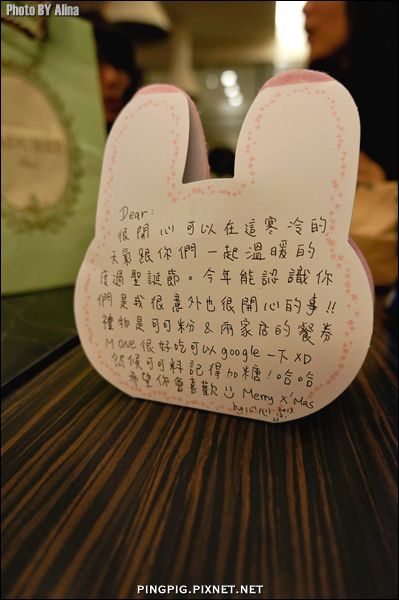 Photo BY Alina
Dear:
很開心可以在這寒冷的
天氣跟你們一起溫暖的
度過聖誕節。今年能認識你
們是我很意外也很開心的事!!
禮物是可可粉&兩家店的餐券
M one很好吃可以google一下XD
然候可可料記得加糖!哈哈
希望你會喜歡 Merry X'Mas
by 心心 2013
PINGPIG.PIXNET.NET